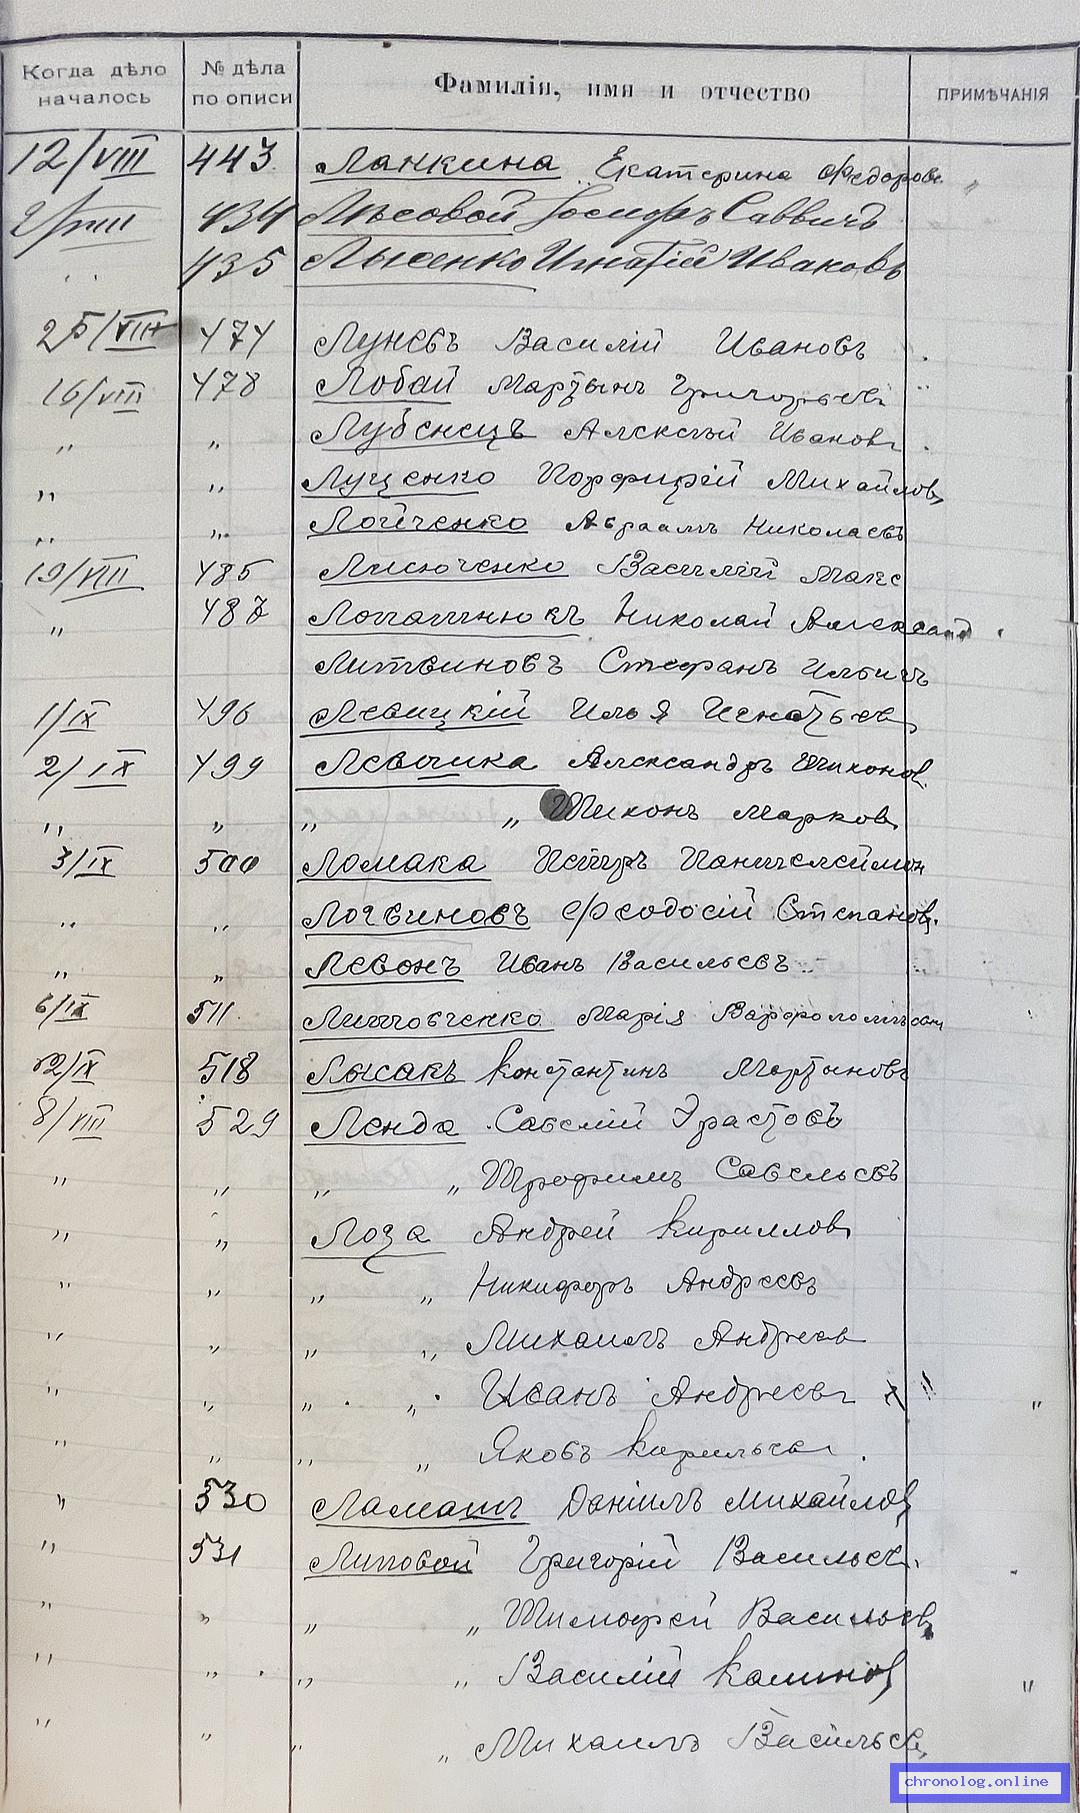 Когда дѣло началось № дѣла по описи Фамилія, имя и отчество ПРИМѢЧАНІЯ
12/VIII 443 Ланкина Екатерина Федоровн
2/VIII 434 Лѣсовой Іосифъ Саввичъ
" 435 Лысенко Игнатій Ивановъ
25/VIII 474 Луневъ Василій Ивановъ
16/VIII 478 Лобай Мартынъ Григорьев
" " Лубенецъ Алексѣй Иванов
" " Лущенко Порфирій Михайлов
" " Лойченко Авраамъ Николаевъ
19/VIII 485 Лисюченко Василій Макс
" 487 Николай Александ
Литвиновъ Стефанъ Ильичъ
1/IX 496 Левицкій Илья Игнатьев
2/IX 499 Левшика Александръ Тихонов
" " " " Тихонъ Марков
3/IX 500 Ломака Петръ Пантелеймон
" " Логвиновъ Феодосій Степанов
" " Левонъ Иванъ Васильевъ
6/IX 511 Литовченко Марія Варфоломѣевн
12/IX 518 Лысакъ Константинъ Мартыновъ
8/VIII 529 Ленда Савелій Эрастовъ
" " " " Трофимъ Савельевъ
" " Лоза Андрей Кириллов
" " " " Никифоръ Андреевъ
" " " " Михаилъ Андреев
" " " " Иванъ Андреев "
" " " " Яковъ Кирильев
" 530 Ламашъ Даніилъ Михайлов
" 531 Липовой Григорій Васильев
" " " " Тимофей Васильев
" " " " Василій Калинов "
" " " " Михаилъ Васильев
chronolog.online